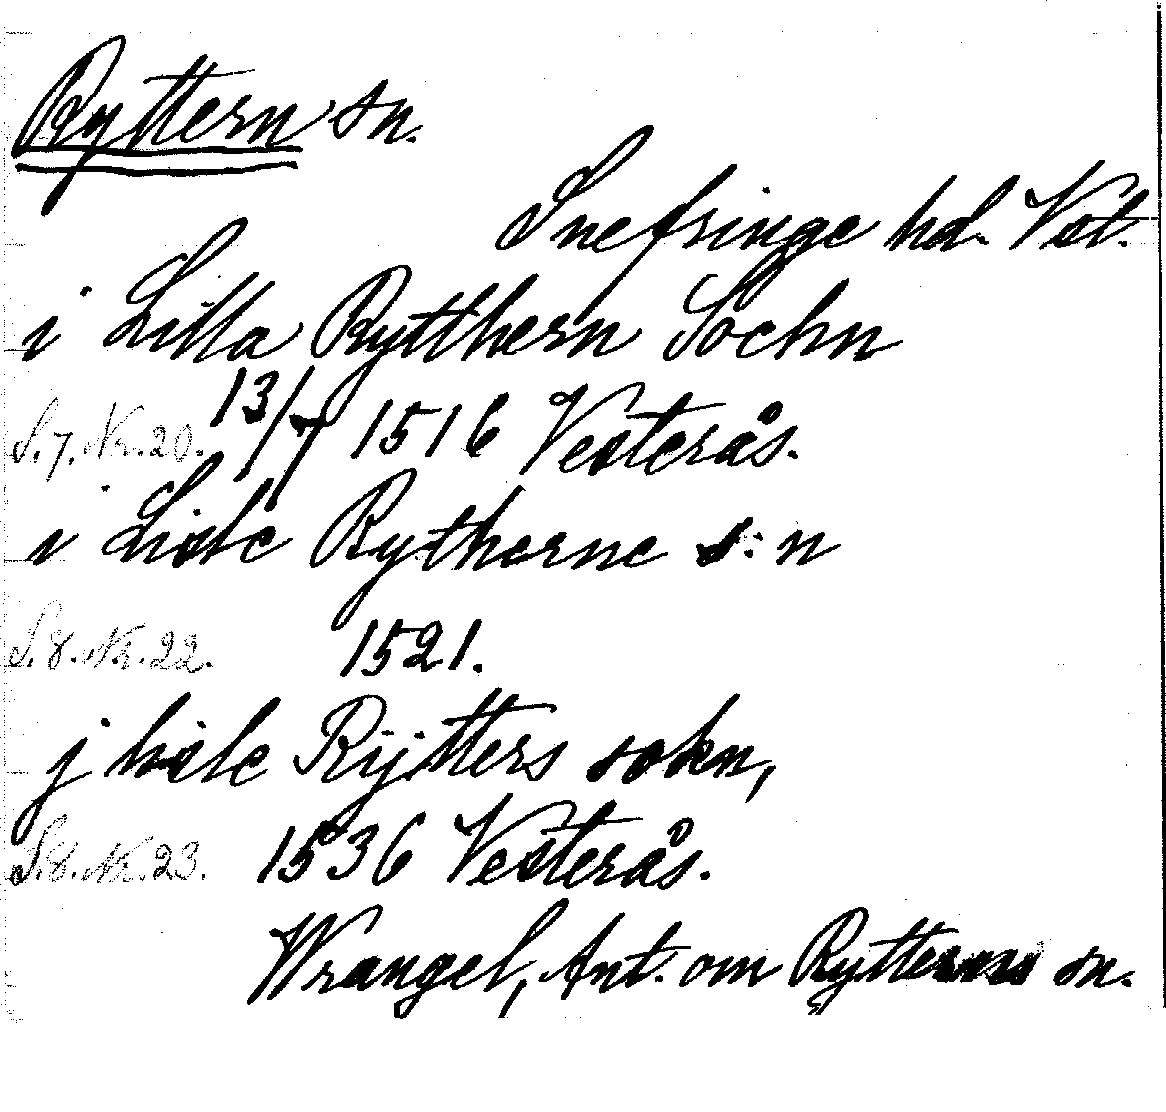 Ryttern sn.
Snefringe hd. Vstl.
i Lilla Rytthern Sochn
S. 7. Nr. 20. 13/7 1516 Vesterås.
i Lisle Rytherne s:n
S. 8. Nr. 22. 1521.
j hisle Rijtters sokn,
S. 8. Nr. 23. 1536 Vesterås.
Wrangel, Ant. om Rytterns sn.